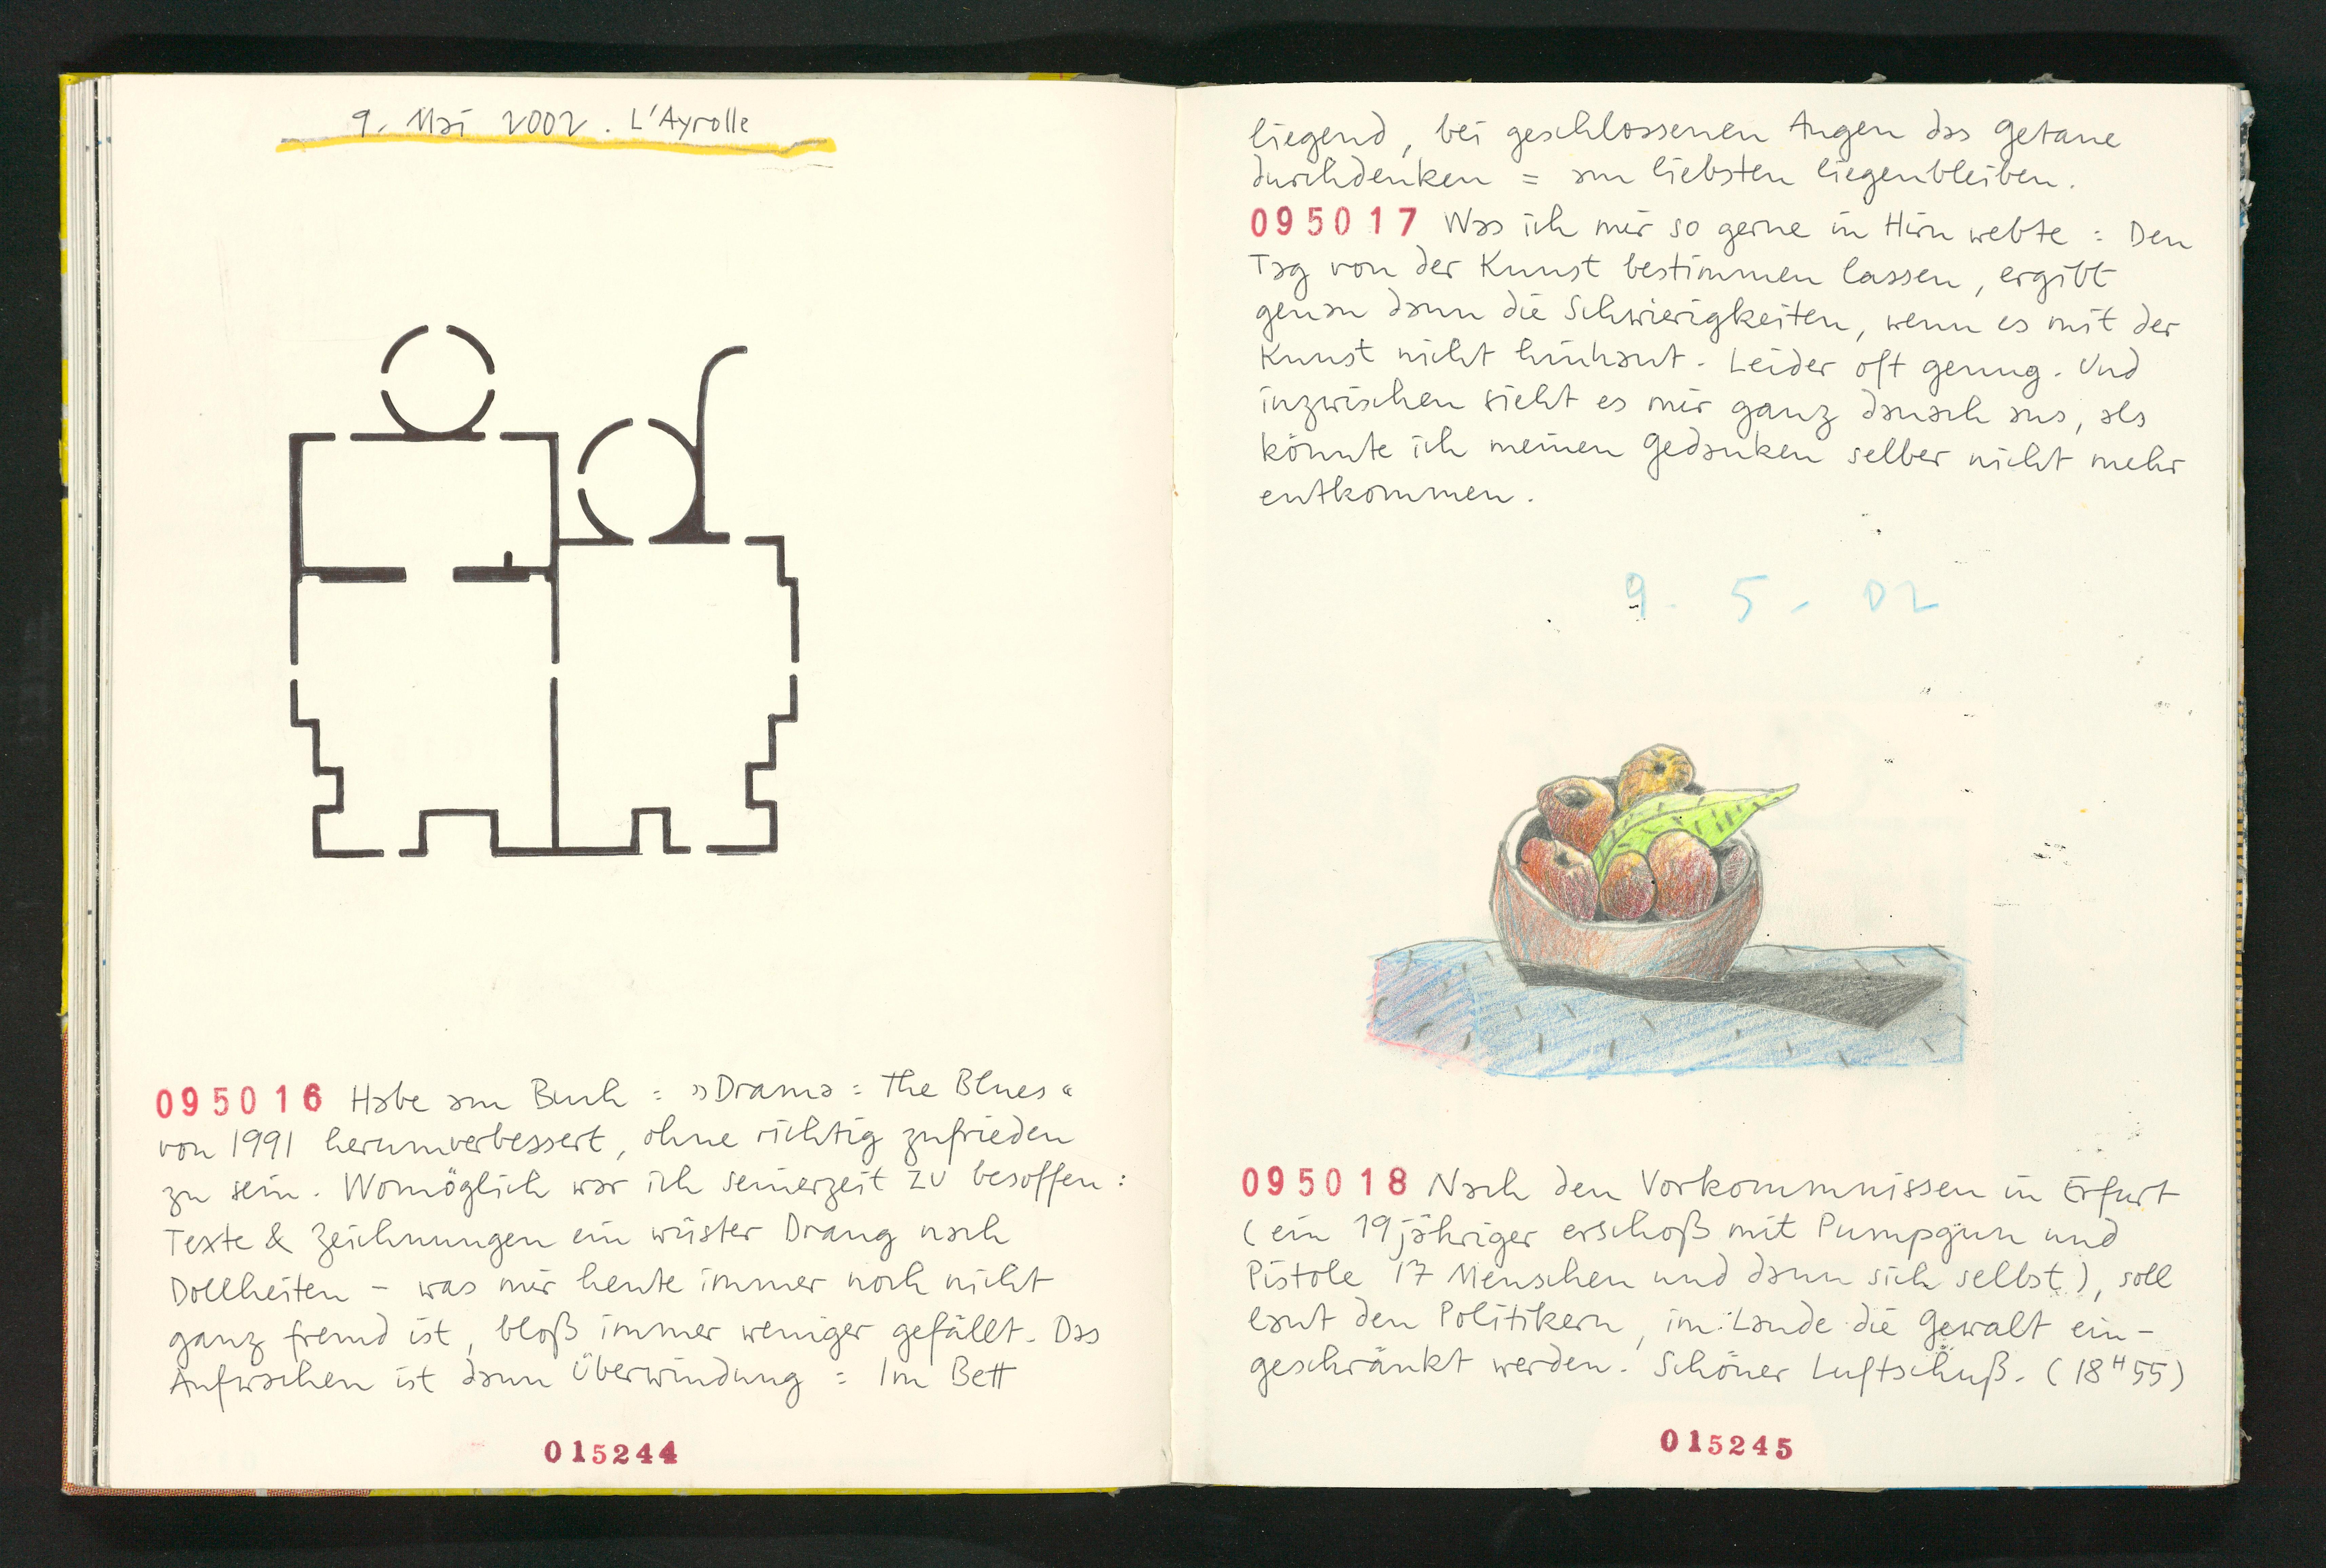 9. Mai 2002. L'Ayrolle
095016 Habe am Buch = »Drama = The Blues«
von 1991 herumverbessert, ohne richtig zufrieden
zu sein. Womöglich war ich seinerzeit zu besoffen:
Texte & Zeichnungen ein wüster Drang nach
Dollheiten – was mir heute immer noch nicht
ganz fremd ist, bloß immer weniger gefällt. Das
Aufwachen ist dann Überwindung = Im Bett
015244
liegend, bei geschlossenen Augen das Getane
durchdenken = am liebsten liegenbleiben.
095017 Was ich mir so gerne in Hirn webte = Den
Tag von der Kunst bestimmen lassen, ergibt
genau dann die Schwierigkeiten, wenn es mit der
Kunst nicht hinhaut. Leider oft genug. Und
inzwischen sieht es mir ganz danach aus, als
könnte ich meinen Gedanken selber nicht mehr
entkommen.
9. 5. 02
095018 Nach den Vorkommnissen in Erfurt
(ein 19jähriger erschoß mit Pumpgun und
Pistole 17 Menschen und dann sich selbst), soll
laut den Politikern, im Lande die Gewalt ein-
geschränkt werden. Schöner Luftschuß. (18H55)
015245